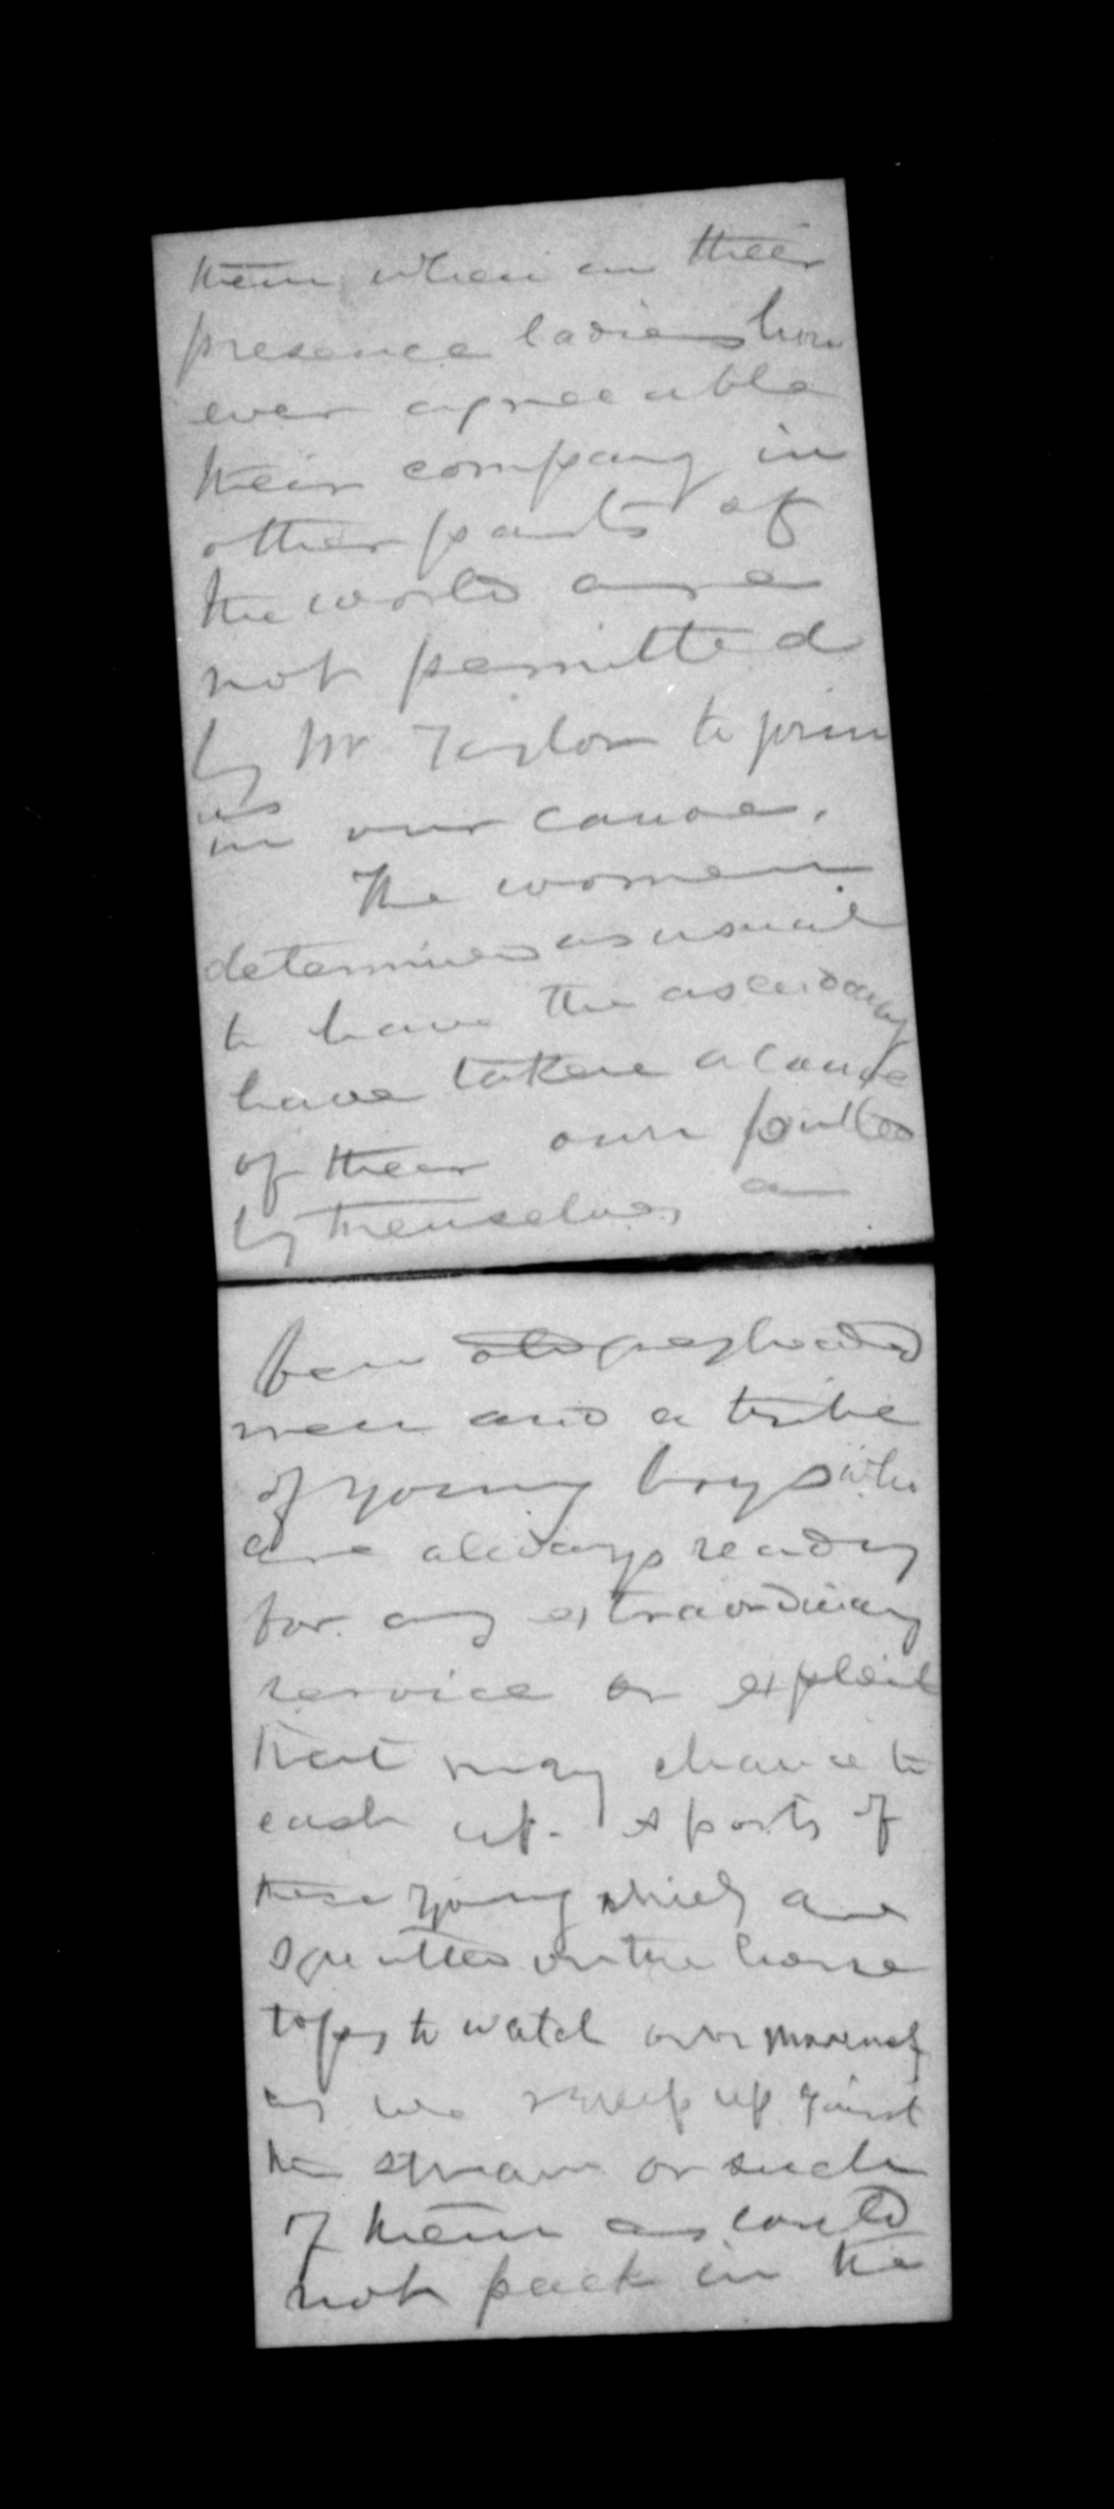 them when in their
presence ladies how
ever agreeable
their company in
other parts of
the world are
not permitted
by Mr Taylor to join
us
in our canoe.
The women
determined as usual
to have the ascendancy
have taken a canoe
of their own pulled
by themselves, a
few old greyheaded
men and a tribe
of young boys who
are always ready
for any extraordinary
service or exploit
that may chance to
cast up. Sports of
these young chiefs are
squatted on the house
tops to watch our
as we sweep up gainst
the stream or such
of them as could
not pack in the